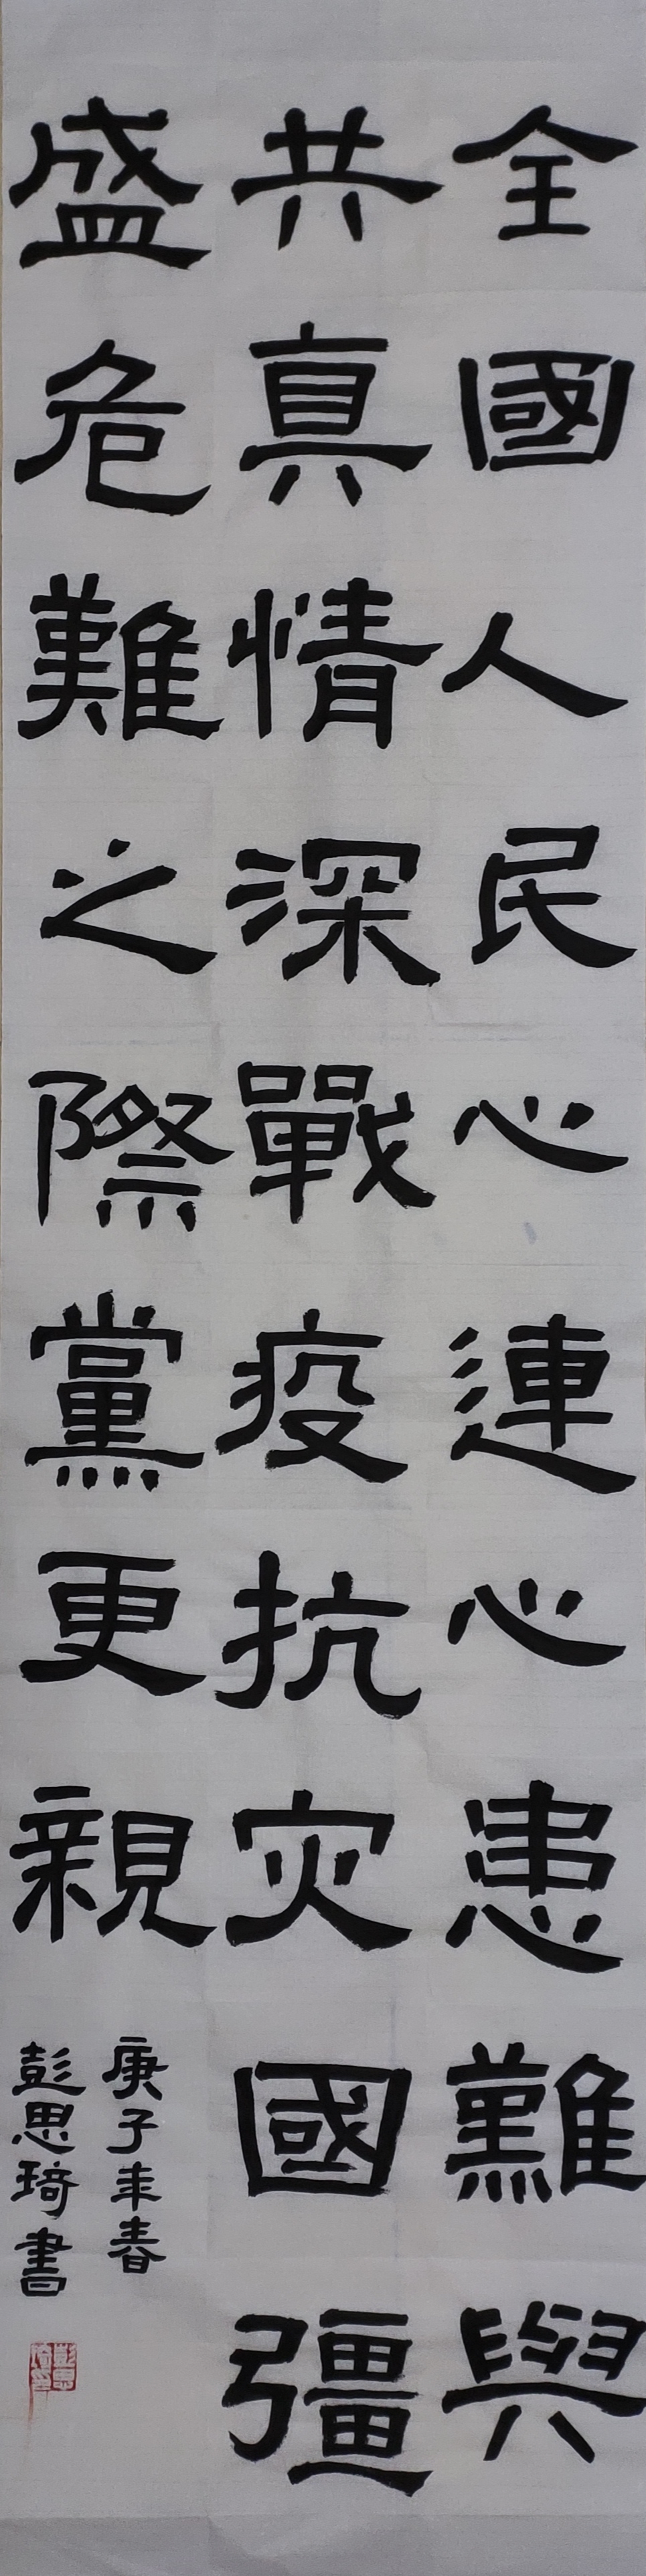 全國人民心連心患難與
共真情深戰疫抗灾國彊
盛危難之際黨更親
庚子年春
彭思琦書
彭思琦印